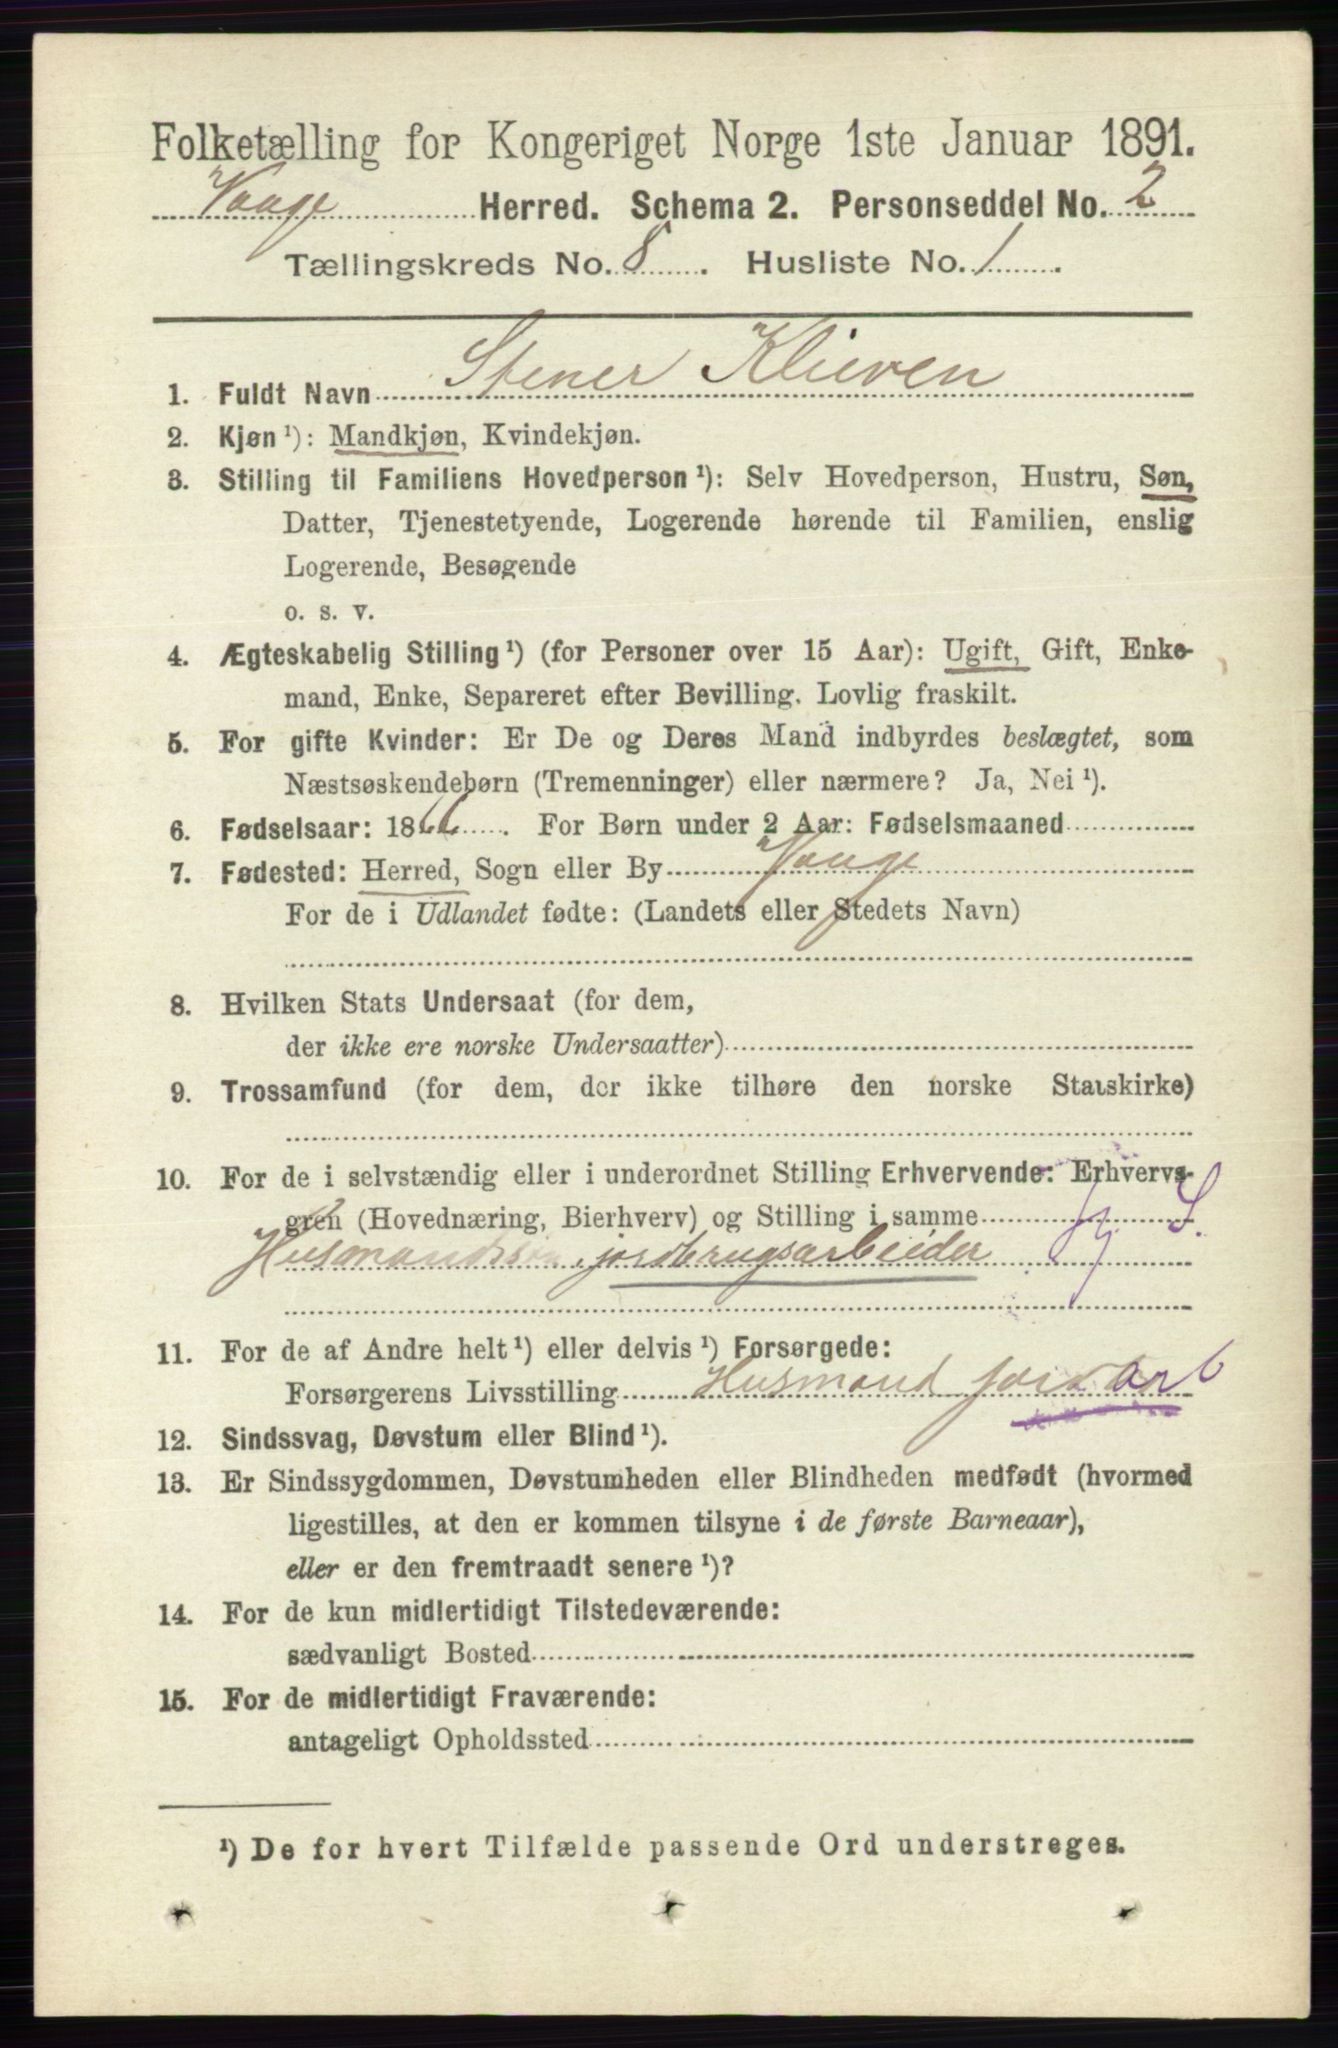 Folketælling for Kongeriget Norge 1ste Januar 1891.
Vaage Herred. Schema 2. Personseddel No. 2
Tællingskreds No. 8. Husliste No. 1.
1. Fuldt Navn Stener Klieven
2. Kjøn ¹): Mandkjøn, Kvindekjøn.
3. Stilling til Familiens Hovedperson ¹): Selv Hovedperson, Hustru, Søn,
Datter, Tjenestetyende, Logerende hørende til Familien, enslig
Logerende, Besøgende
o. s. v.
4. Ægteskabelig Stilling ¹) (for Personer over 15 Aar): Ugift, Gift, Enke-
mand, Enke, Separeret efter Bevilling. Lovlig fraskilt.
5. For gifte Kvinder: Er De og Deres Mand indbyrdes beslægtet, som
Næstsøskendebørn (Tremenninger) eller nærmere? Ja, Nei ¹).
6. Fødselsaar: 1866. For Børn under 2 Aar: Fødselsmaaned
7. Fødested: Herred, Sogn eller By Vaage
For de i Udlandet fødte: (Landets eller Stedets Navn)
8. Hvilken Stats Undersaat (for dem,
der ikke ere norske Undersaatter)
9. Trossamfund (for dem, der ikke tilhøre den norske Statskirke)
10. For de i selvstændig eller i underordnet Stilling Erhvervende: Erhvervs-
gren (Hovednæring, Bierhverv) og Stilling i samme S.
Husmandssøn, jordbrugsarbeider
11. For de af Andre helt ¹) eller delvis ¹) Forsørgede:
Forsørgerens Livsstilling Husmand jord arb
12. Sindssvag, Døvstum eller Blind ¹).
13. Er Sindssygdommen, Døvstumheden eller Blindheden medfødt (hvormed
ligestilles, at den er kommen tilsyne i de første Barneaar),
eller er den fremtraadt senere ¹)?
14. For de kun midlertidigt Tilstedeværende:
sædvanligt Bosted
15. For de midlertidigt Fraværende:
antageligt Opholdssted
¹) De for hvert Tilfælde passende Ord understreges.